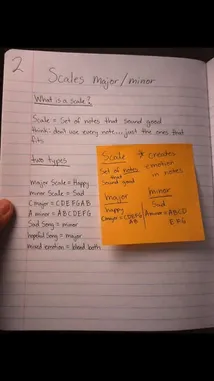 2
Scales major/minor
What is a scale?
Scale = set of notes that sound good
think: don't use every note... just the ones that
fits
two types
major Scale = Happy
minor Scale = Sad
C major = CDEFGAB
A minor = ABCDEFG
Sad Song = minor
hopeful Song = major
mixed emotion = blend both
Scale * creates
emotion
in notes
Set of notes
that
Sound good
major
happy
C major = CDEFG
AB
minor
Sad
A minor = ABCD
EFG